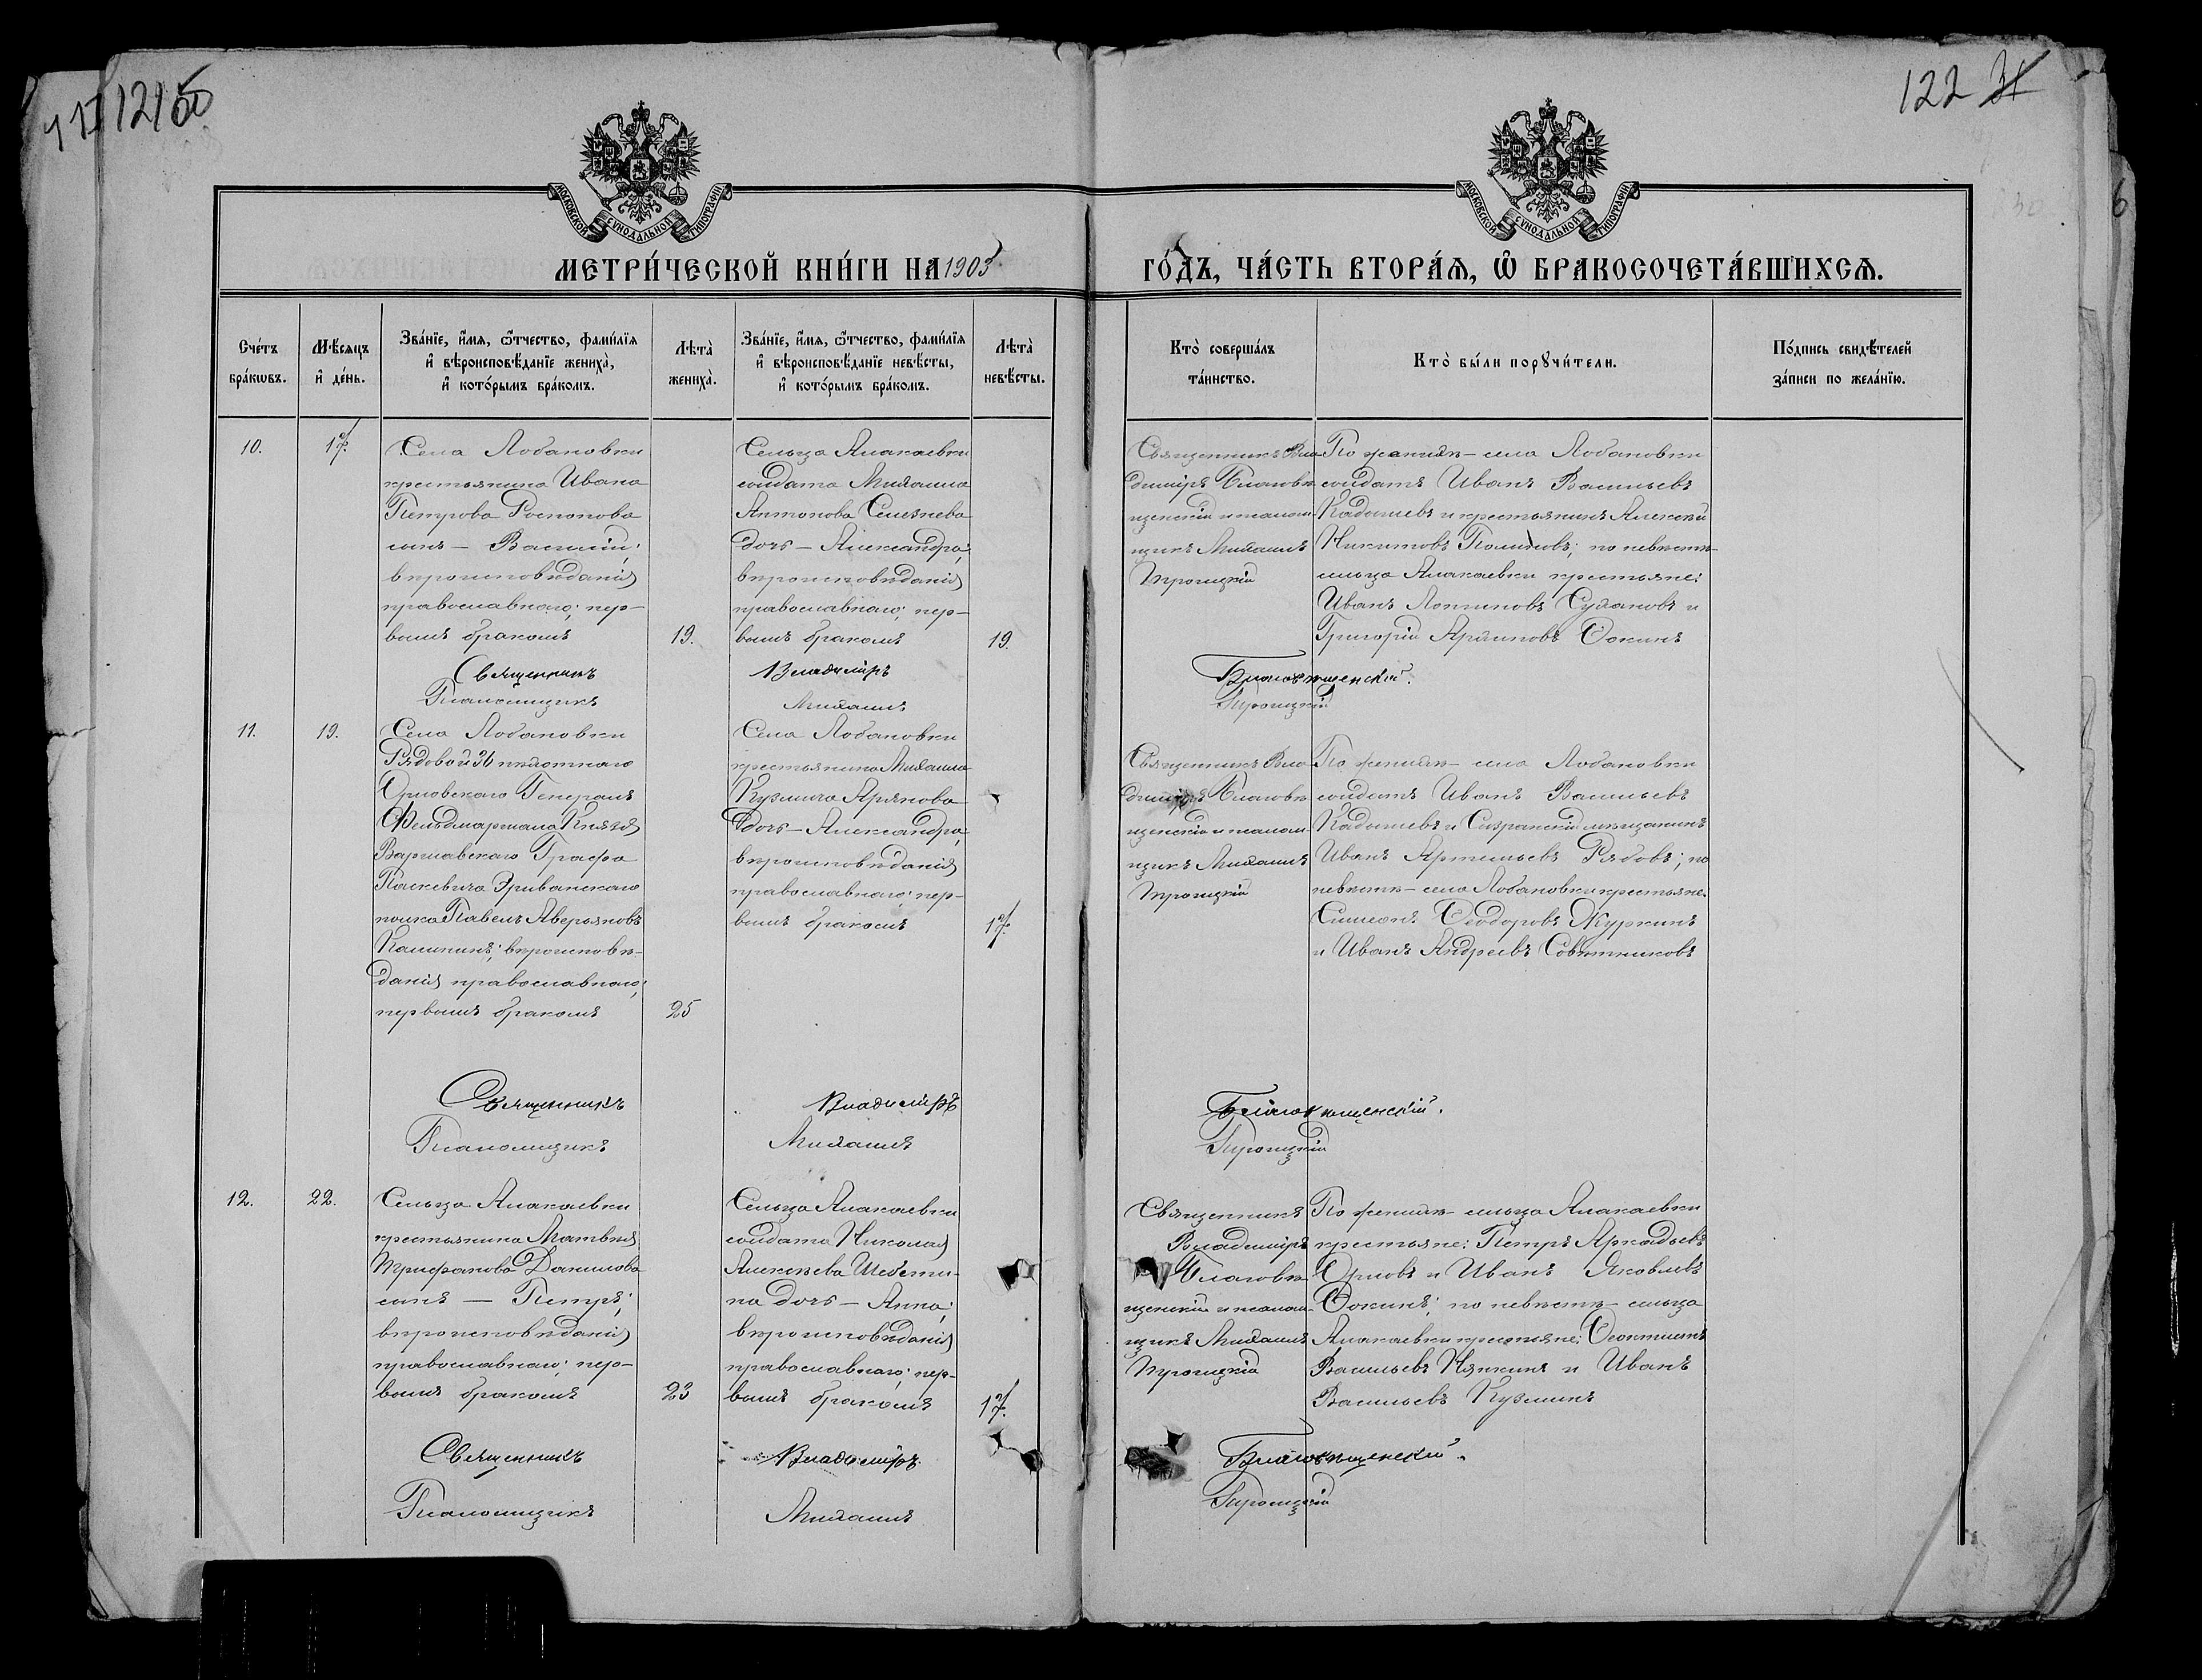 12150
122 31
МОСКОВСКОЙ СѴНОДАЛЬНОЙ ТИПОГРАФІИ
МОСКОВСКОЙ СѴНОДАЛЬНОЙ ТИПОГРАФІИ
МЕТРИ́ЧЕСКОЙ КНИ́ГИ НА 1903
ГО́ДЪ, ЧА́СТЬ ВТОРА́Ѧ, Ѡ҆ БРАКОСОЧЕТА́ВШИХСѦ.
Сче́тъ
бра́кѡвъ.
Мѣ́сяцъ
и҆ де́нь.
Зва́нїе, и҆́мѧ, ѻ҆́тчество, фами́лїѧ
и҆ вѣроисповѣ́данїе жениха̀,
и҆ кото́рымъ бра́комъ.
Лѣ́та̀
жениха̀.
Зва́нїе, и҆́мѧ, ѻ҆́тчество, фами́лїѧ
и҆ вѣроисповѣ́данїе невѣ́сты,
и҆ кото́рымъ бра́комъ.
Лѣ́та̀
невѣ́сты.
Кто̀ соверша́лъ
та́инство.
Кто̀ бы́ли порꙋчи́тели.
По́дпись свидѣ́телей
за́писи по жела́нїю.
10.
17.
Села Лобановки
крестьянина Ивана
Петрова Роспопова
сынъ — Василій;
вѣроисповѣданія
православнаго; пер-
вымъ бракомъ
19.
Сельца Алакаевки
солдата Михаила
Антонова Селезнева
дочь — Александра;
вѣроисповѣданія
православнаго; пер-
вымъ бракомъ
19.
Священникъ Вла-
диміръ Благовѣ-
щенскій и псалом-
щикъ Михаилъ
Троицкій
По женихѣ — села Лобановки
солдатъ Иванъ Васильевъ
Кадышевъ и крестьянинъ Алексѣй
Никитовъ Поляковъ; по невѣстѣ —
сельца Алакаевки крестьяне:
Иванъ Логиновъ Сулановъ и
Григорій Архиповъ Ѳокинъ
Священникъ Владиміръ Благовѣщенскій.
Псаломщикъ Михаилъ Троицкій
11.
19.
Села Лобановки
Рядовой 36 пѣхотнаго
Орловскаго Генералъ
Фельдмаршала Князя
Варшавскаго Графа
Паскевича Эриванскаго
полка Павелъ Аверьяновъ
Калининъ; вѣроисповѣ-
данія православнаго;
первымъ бракомъ
25
Села Лобановки
крестьянина Михаила
Кузмича Аряпова
дочь — Александра,
вѣроисповѣданія
православнаго; пер-
вымъ бракомъ
17.
Священникъ Вла-
диміръ Благовѣ-
щенскій и псалом-
щикъ Михаилъ
Троицкій
По женихѣ — села Лобановки
солдатъ Иванъ Васильевъ
Кадышевъ и Сызранскій мѣщанинъ
Иванъ Артемьевъ Рябовъ; по
невѣстѣ — села Лобановки крестьяне:
Симеонъ Ѳеодоровъ Журкинъ
и Иванъ Андреевъ Совѣтниковъ
Священникъ Владиміръ Благовѣщенскій.
Псаломщикъ Михаилъ Троицкій
12.
22.
Сельца Алакаевки
крестьянина Матвѣя
Трифанова Данилова
сынъ — Петръ;
вѣроисповѣданія
православнаго; пер-
вымъ бракомъ
23
Сельца Алакаевки
солдата Николая
Алексѣева Шебети-
на дочь — Анна;
вѣроисповѣданія
православнаго; пер-
вымъ бракомъ
17.
Священникъ
Владиміръ
Благовѣ-
щенскій и псалом-
щикъ Михаилъ
Троицкій
По женихѣ — сельца Алакаевки
крестьяне: Петръ Аркадьевъ
Орловъ и Иванъ Яковлевъ
Ѳокинъ; по невѣстѣ — сельца
Алакаевки крестьяне: Ѳеоктистъ
Васильевъ Няпкинъ и Иванъ
Васильевъ Кузминъ
Священникъ Владиміръ Благовѣщенскій.
Псаломщикъ Михаилъ Троицкій